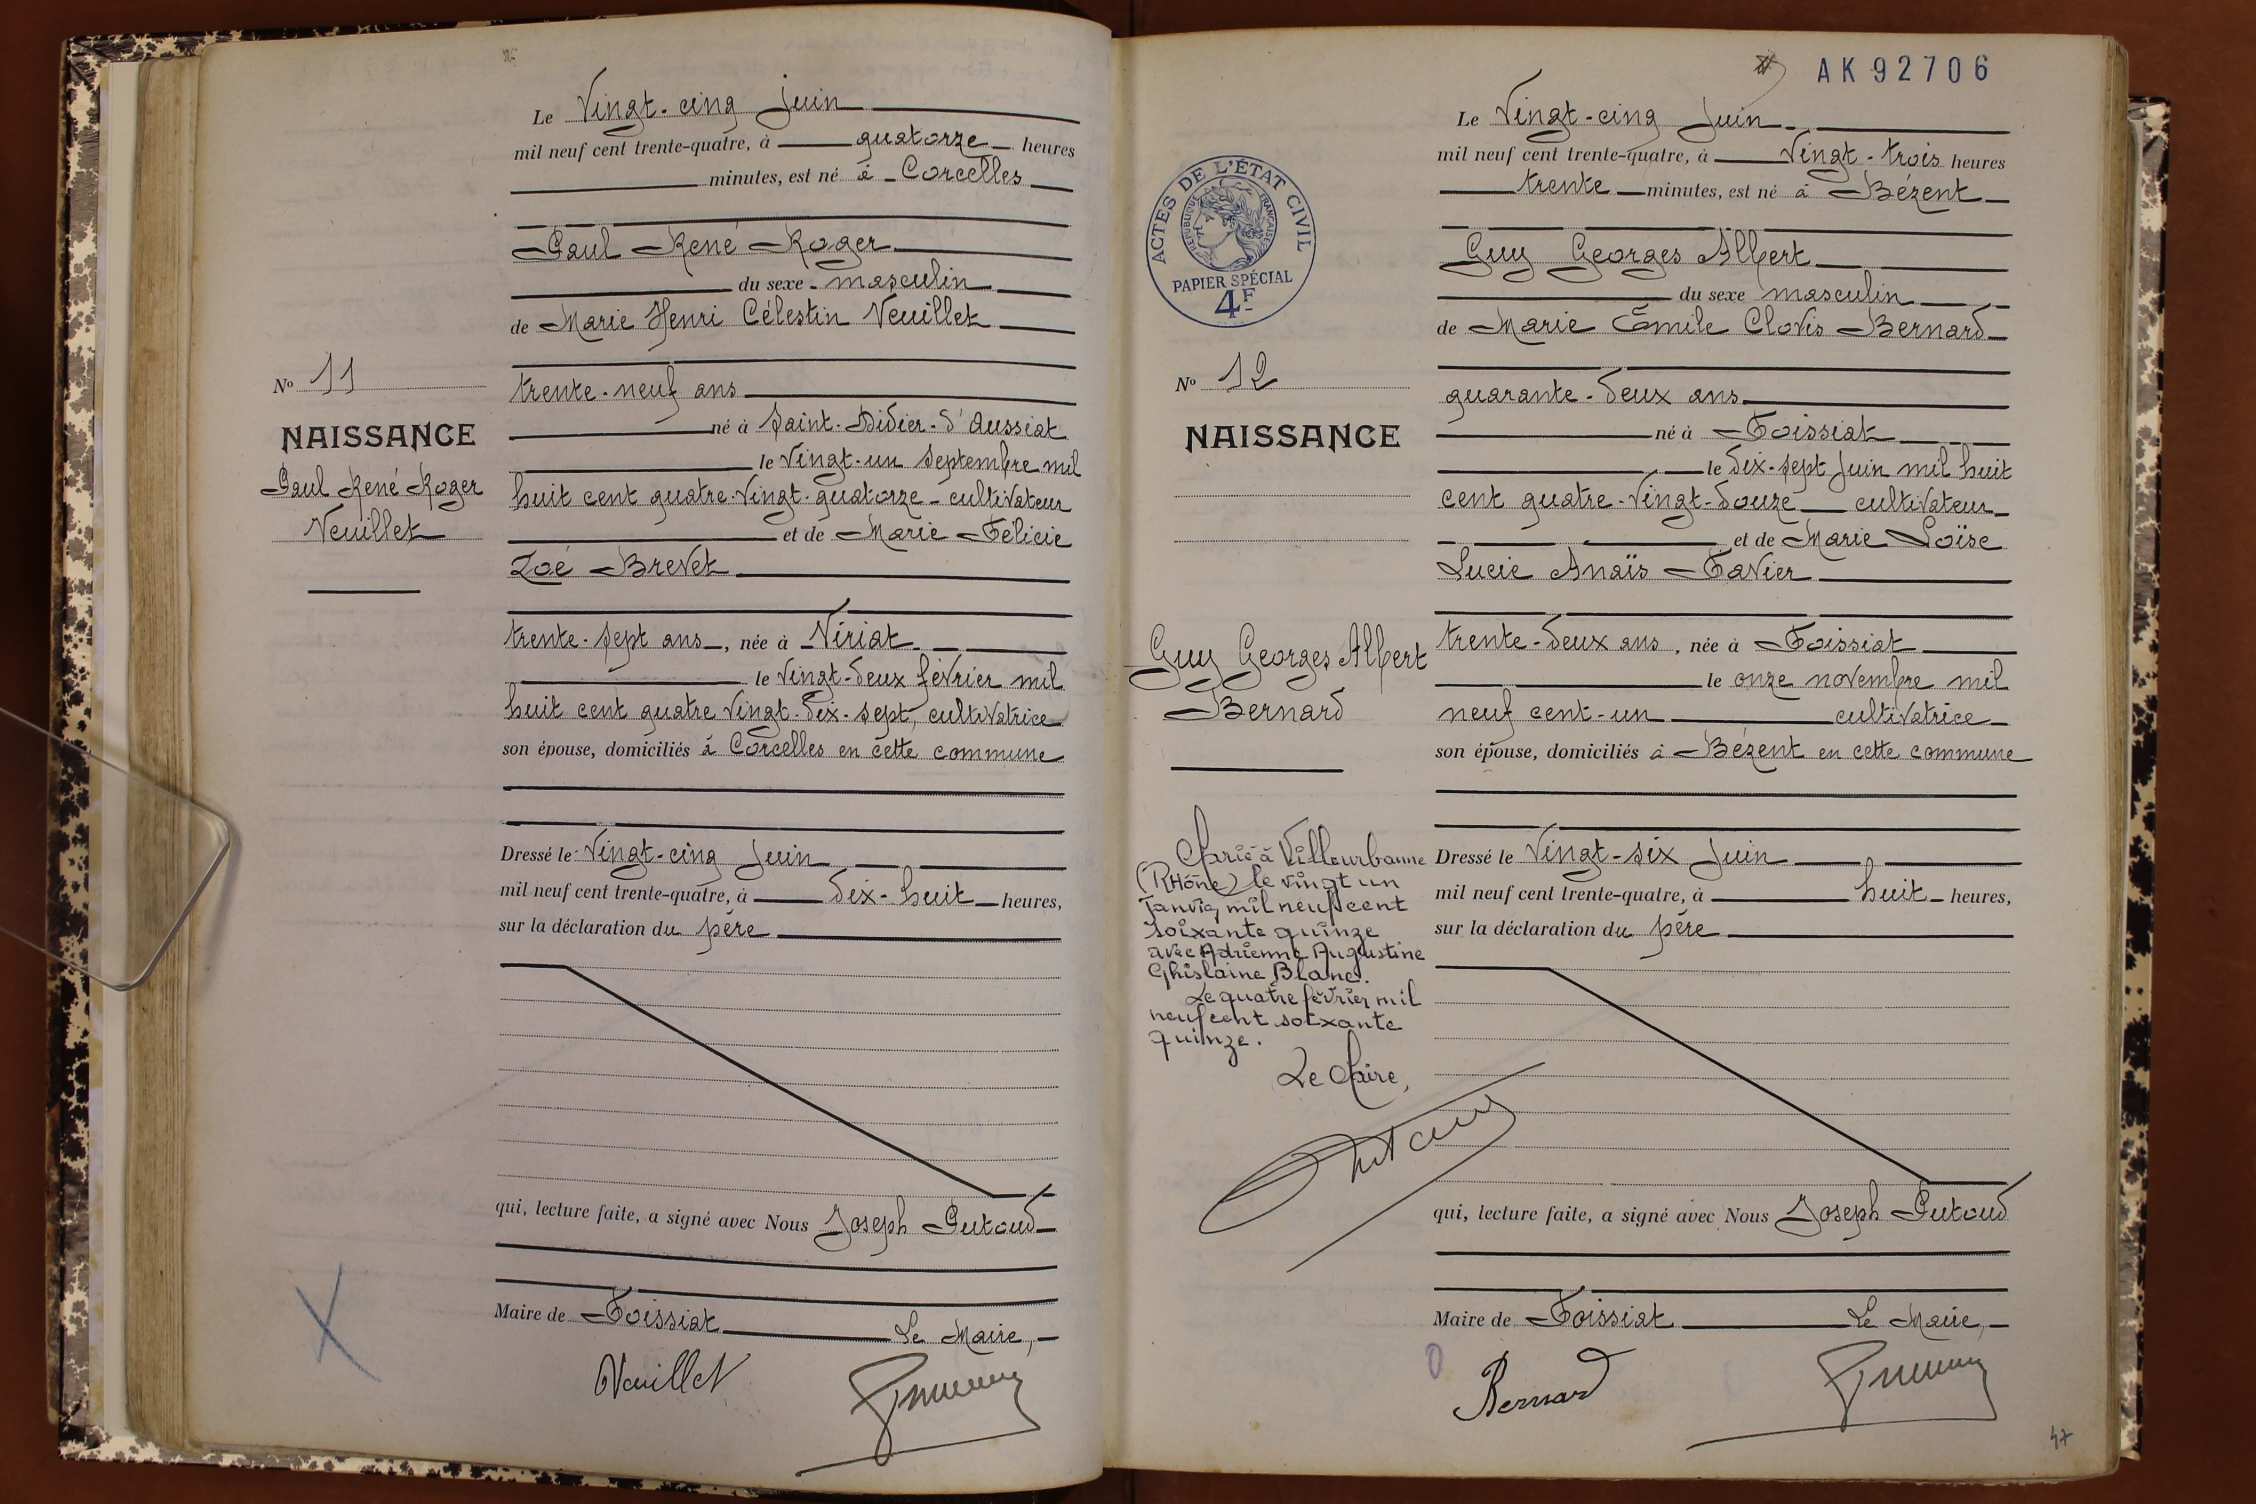 Le Vingt-cinq Juin
mil neuf cent trente-quatre, à quatorze heures
minutes, est né à Corcelles
Paul René Roger
du sexe masculin
de Marie Henri Célestin Veuillet
trente-neuf ans
né à Saint-Didier-d'Aussiat
le Vingt-un Septembre mil
huit cent quatre-Vingt-quatorze cultivateur
et de Marie Félicie
Zoé Brevet
trente-sept ans, née à Viriat
le Vingt-deux février mil
huit cent quatre Vingt-dix-sept, cultivatrice
son épouse, domiciliés à Corcelles en cette commune
Dressé le Vingt-cinq Juin
mil neuf cent trente-quatre, à dix-huit heures,
sur la déclaration du père
qui, lecture faite, a signé avec Nous Joseph Putoud
Maire de Foissiat Le Maire,
Veuillet
No 11
NAISSANCE
Paul René Roger
Veuillet
AK92706
ACTES DE L'ÉTAT CIVIL
RÉPUBLIQUE FRANÇAISE
PAPIER SPÉCIAL
4F
No 12
NAISSANCE
Guy Georges Albert
Bernard
Marié à Villeurbanne
(Rhône) le vingt un
Janvier mil neuf cent
soixante quinze
avec Adrienne Augustine
Ghislaine Blanc.
Le quatre février mil
neuf cent soixante
quinze.
Le Maire,
Le Vingt-cinq Juin
mil neuf cent trente-quatre, à Vingt-trois heures
trente minutes, est né à Bézent
Guy Georges Albert
du sexe masculin
de Marie Émile Clovis Bernard
quarante-deux ans
né à Foissiat
le dix-sept Juin mil huit
cent quatre-Vingt-douze cultivateur
et de Marie Loïse
Lucie Anaïs Favier
trente-deux ans, née à Foissiat
le onze novembre mil
neuf cent-un cultivatrice
son épouse, domiciliés à Bézent en cette commune
Dressé le Vingt-six Juin
mil neuf cent trente-quatre, à huit heures,
sur la déclaration du père
qui, lecture faite, a signé avec Nous Joseph Putoud
Maire de Foissiat Le Maire,
Bernard
47